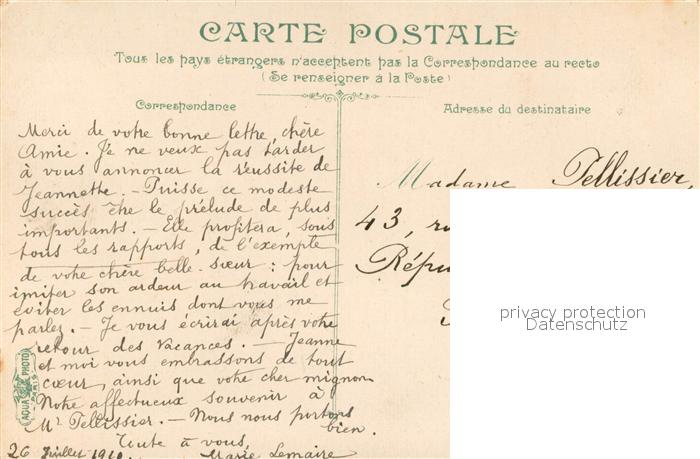 CARTE POSTALE
Tous les pays étrangers n'acceptent pas la Correspondance au recto
(Se renseigner à la Poste)
Correspondance
Merci de votre bonne lettre, chère
Amie. Je ne veux pas tarder
à vous annoncer la réussite de
Jeannette. - Puisse ce modeste
succès être le prélude de plus
importants. - Elle profitera, sous
tous les rapports, de l'exemple
de votre chère belle-sœur : pour
imiter son ardeur au travail et
éviter les ennuis dont vous me
parlez. - Je vous écrirai après votre
retour des vacances. - Jeanne
et moi vous embrassons de tout
cœur, ainsi que votre cher mignon.
Notre affectueux souvenir à
Mr Pellissier. - Nous nous portons
bien.
Toute à vous,
26 Juillet 1910. Marie Lemaire
AQUA PHOTO
PARIS
Adresse du destinataire
Madame Pellissier,
43, ru
Répu
privacy protection
Datenschutz